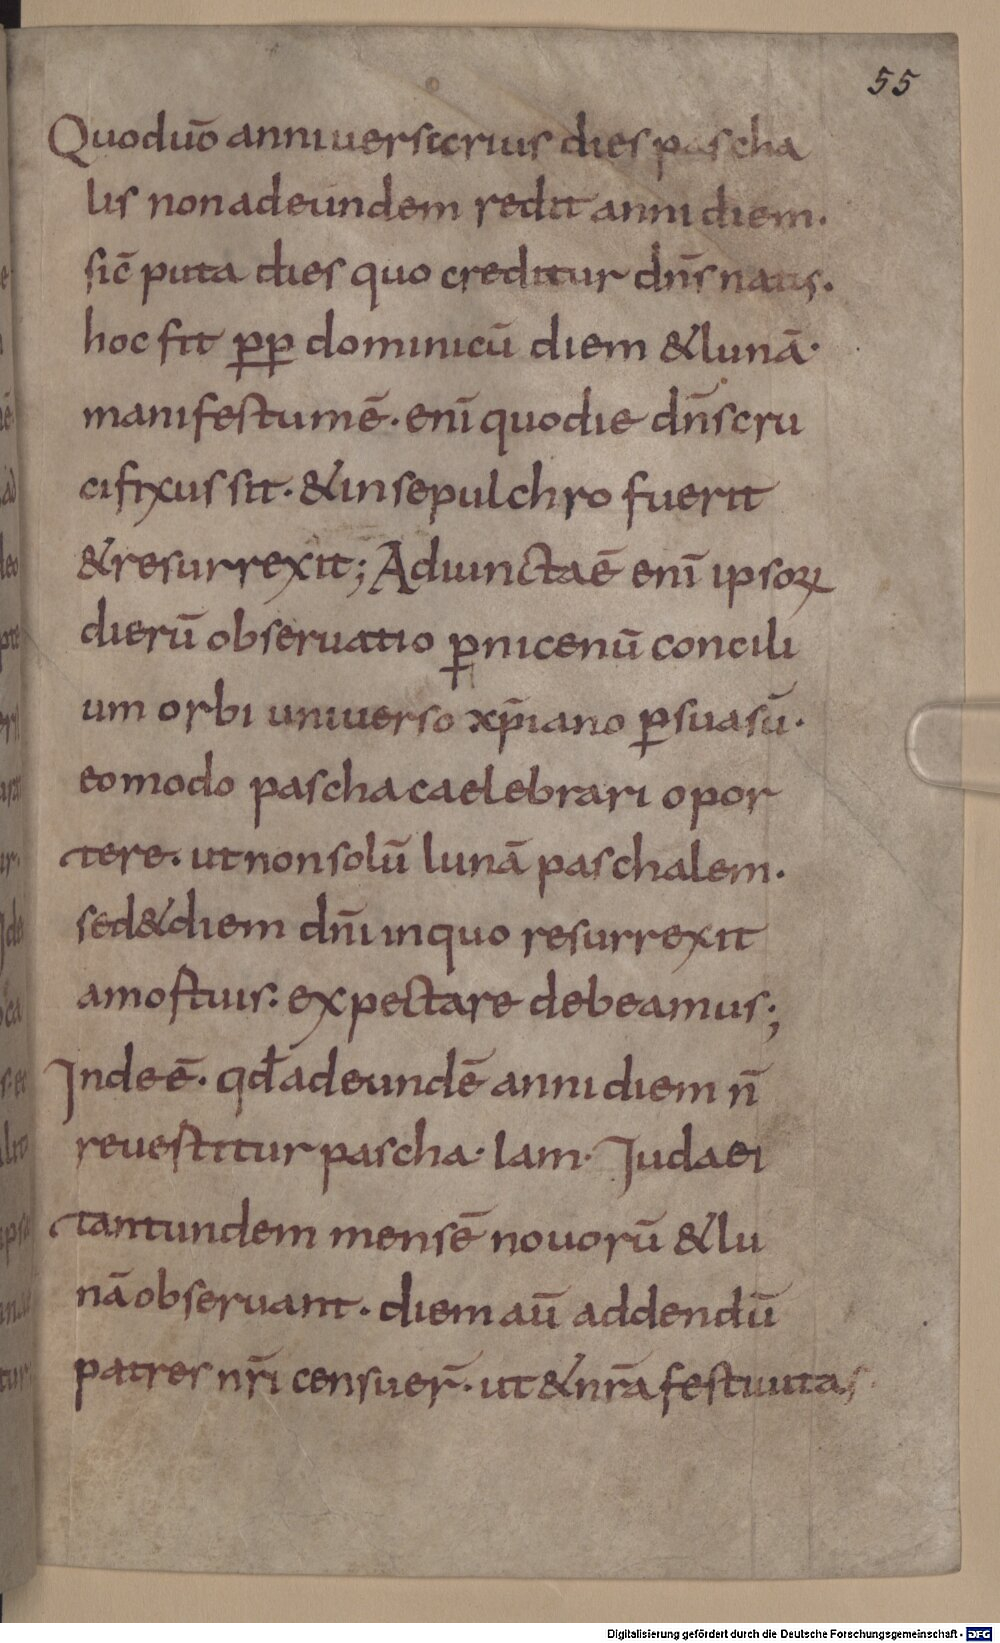 55
Quoduō anniuersarius dies pascha
lis non adeundem redit anni diem.
sic̄ puta dies quo creditur dn̄s natus.
hoc fit ꝓp dominicū diem &lunā.
manifestumē. enī quodie dn̄s cru
cifixus sit. &insepulchro fuerit
&resurrexit; Adiunctaē enī ipsoꝝ
dierū obseruatio ꝑnicenū concili
um orbi uniuerso xp̄iano ꝑsuasū.
eomodo pascha caelebrari opor
tere. ut nonsolū lunā paschalem.
sed&diem dn̄i inquo resurrexit
amoftuis. expectare debeamus;
Indeē. qd̄adeundē anni diem n̄
reuestitur pascha. lam. Iudaei
tantundem mensē nouorū &lu
nā obseruant. diem aū addendū
patres nr̄i censuer̄. ut &nr̄a festiuitas
Digitalisierung gefördert durch die Deutsche Forschungsgemeinschaft - DFG